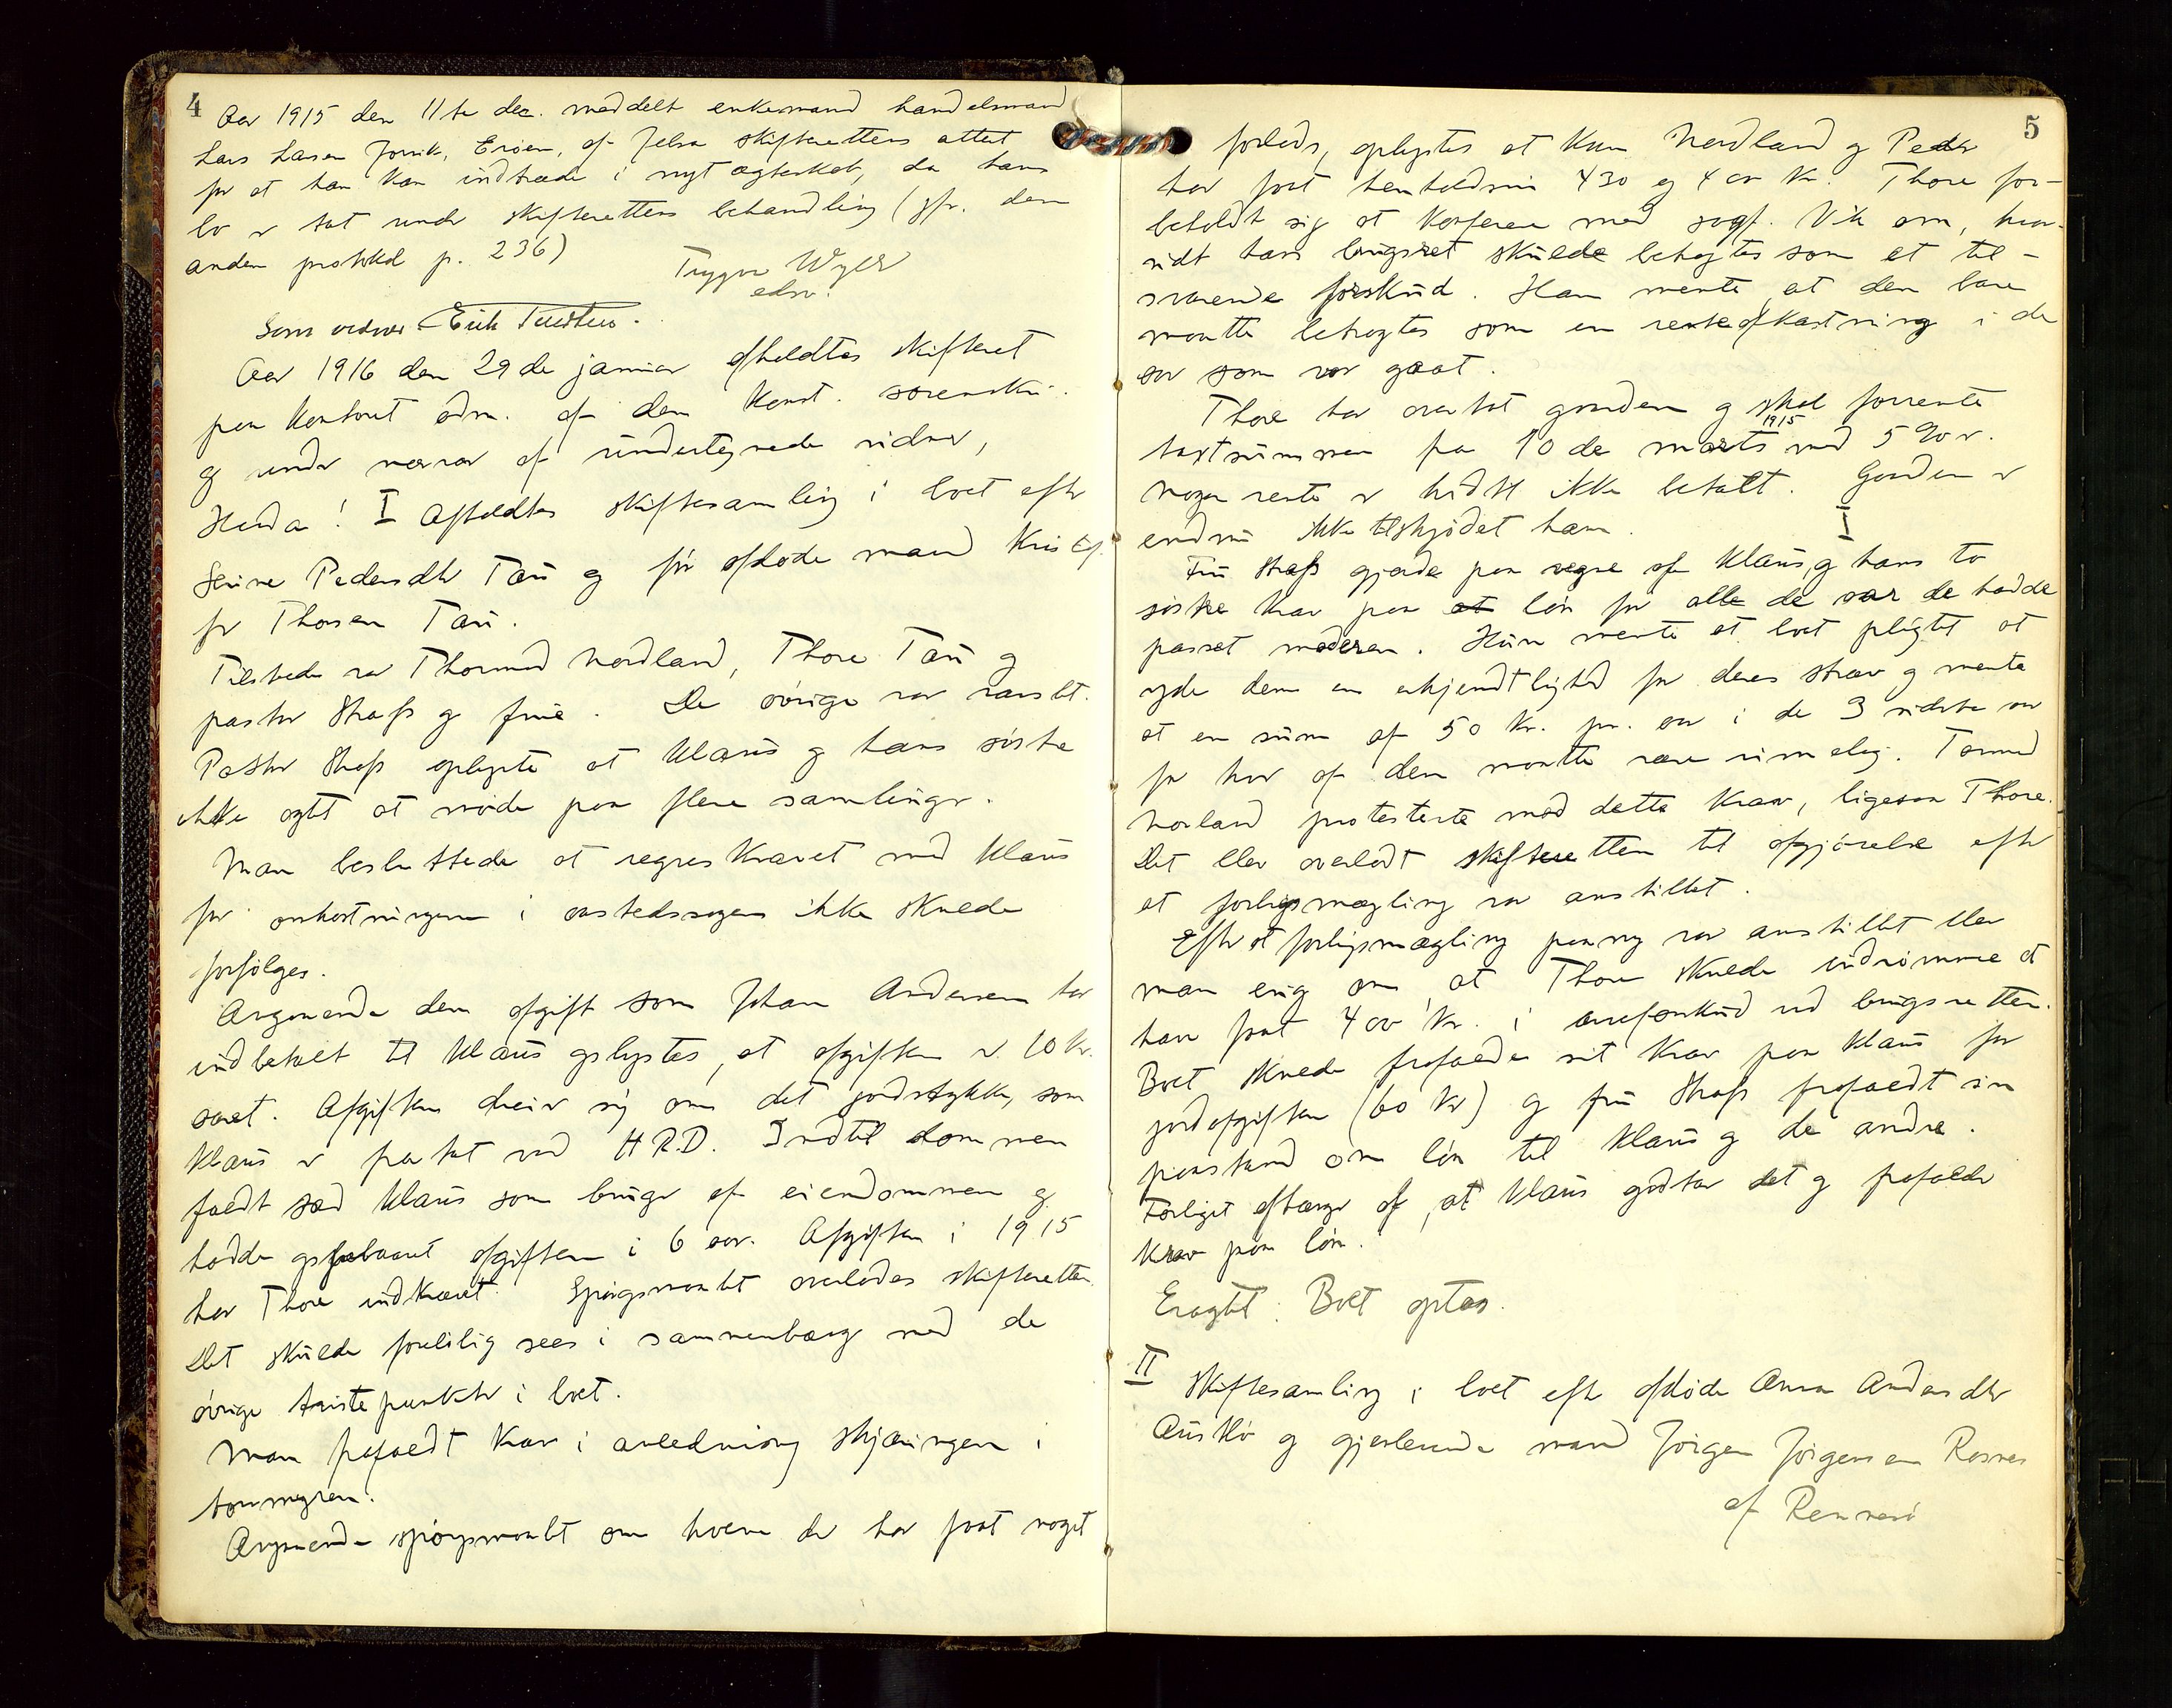 4
Aar 1915 den 11te dec. meddelt enkemand handelsmand
Lars Larsen Jorvik, Erøen, af Jelsa skifterettens attest
for at han kan indtræde i nyt ægteskab, da hans
bo er tat under skifterettens behandling (jfr. den
anden protokol p. 236)
Trygve Wyller
edsv.
Som vidner Erik
Aar 1916 den 29de januar afholdtes skifteret
paa kontoret adm. af den konst. sorenskr.
og under nærvær af undertegnede vidner,
Herda! I Afholdtes skiftesamling i boet efter
Serine Pedersdtr Tau og før afdøde mand Krist
fr Thorsen Tau.
Tilstede var Thormod Nordland, Thore Tau og
pastor Skafs og frue. De øvrige var varslet.
Pastor Skafs oplyste at Klaus og hans søstre
ikke agtet at møde paa flere samlinger.
Man besluttede at regreskravet mod Klaus
for omkostningerne i aastedssagen ikke skulde
forfølges.
Angaaende den afgift som Johan Andersen har
indbetalt til Klaus oplystes, at afgiften er 10 kr.
aaret. Afgiften dreier sig om det jordstykke, som
Klaus er fratat ved H.R.D. Indtil dommen
faldt sad Klaus som bruger af eiendommen og
hadde oppebaaret afgiften i 6 aar. Afgiften i 1915
har Thore indkrævet. Spørgsmaalet overlodes skifteretten.
Det skulde foreløbig sees i sammenhæng med de
øvrige tvistepunkter i boet.
Man frafaldt krav i anledning skjæringen i
torvmyren.
Angaaende spørgsmaalet om hvem der har faat noget
5
forlods, oplystes at kun Nordland og Peder
har faat henholdsvis 430 og 400 kr. Thore for-
beholdt sig at konferere med sagf. Vik om, hvor-
vidt hans bruksret skulde betragtes som et til-
svarende forskud. Han mente at den bare
maatte betragtes som en renteafkastning i de
aar som var gaat.
Thore har overtat gaarden og skal forrente
takstsummen fra 10de marts 1915 med 5 % r.
Nogen rente er hidtil ikke betalt. Gaarden er
endnu ikke tilskjødet ham. I
Fru Skafs gjorde paa vegne af Klaus og hans to
søstre krav paa at løn for alle de aar de hadde
passet moderen. Hun mente at boet pligtet at
yde dem en erkjendtlighed for deres stræv og mente
at en sum af 50 kr. pr. aar i de 3 sidste aar
for hver af dem maatte være rimelig. Tormod
Norland protesterte mod dette krav, ligesaa Thore.
Det blev overlodt skifteretten til afgjørelse efter
at forligsmægling var anstillet.
Efter at forligsmægling paany var anstillet blev
man enig om at Thore skulde indrømme at
have faat 400 kr. i arveforskud ved brugsretten.
Boet skulde frafalde sit krav paa Klaus for
jordafgiften (60 kr) og fru Skafs frafaldt sin
paastand om løn til Klaus og de andre.
Forliget afhænger af, at Klaus godtar det og frafalder
krav paa løn.
Eragtet: Boet optas.
II
Skiftesamling i boet efter afdøde Anna Andersdtr
Auskø og gjenlevende mand Jørgen Jørgensen Rosnes
af Rennesø